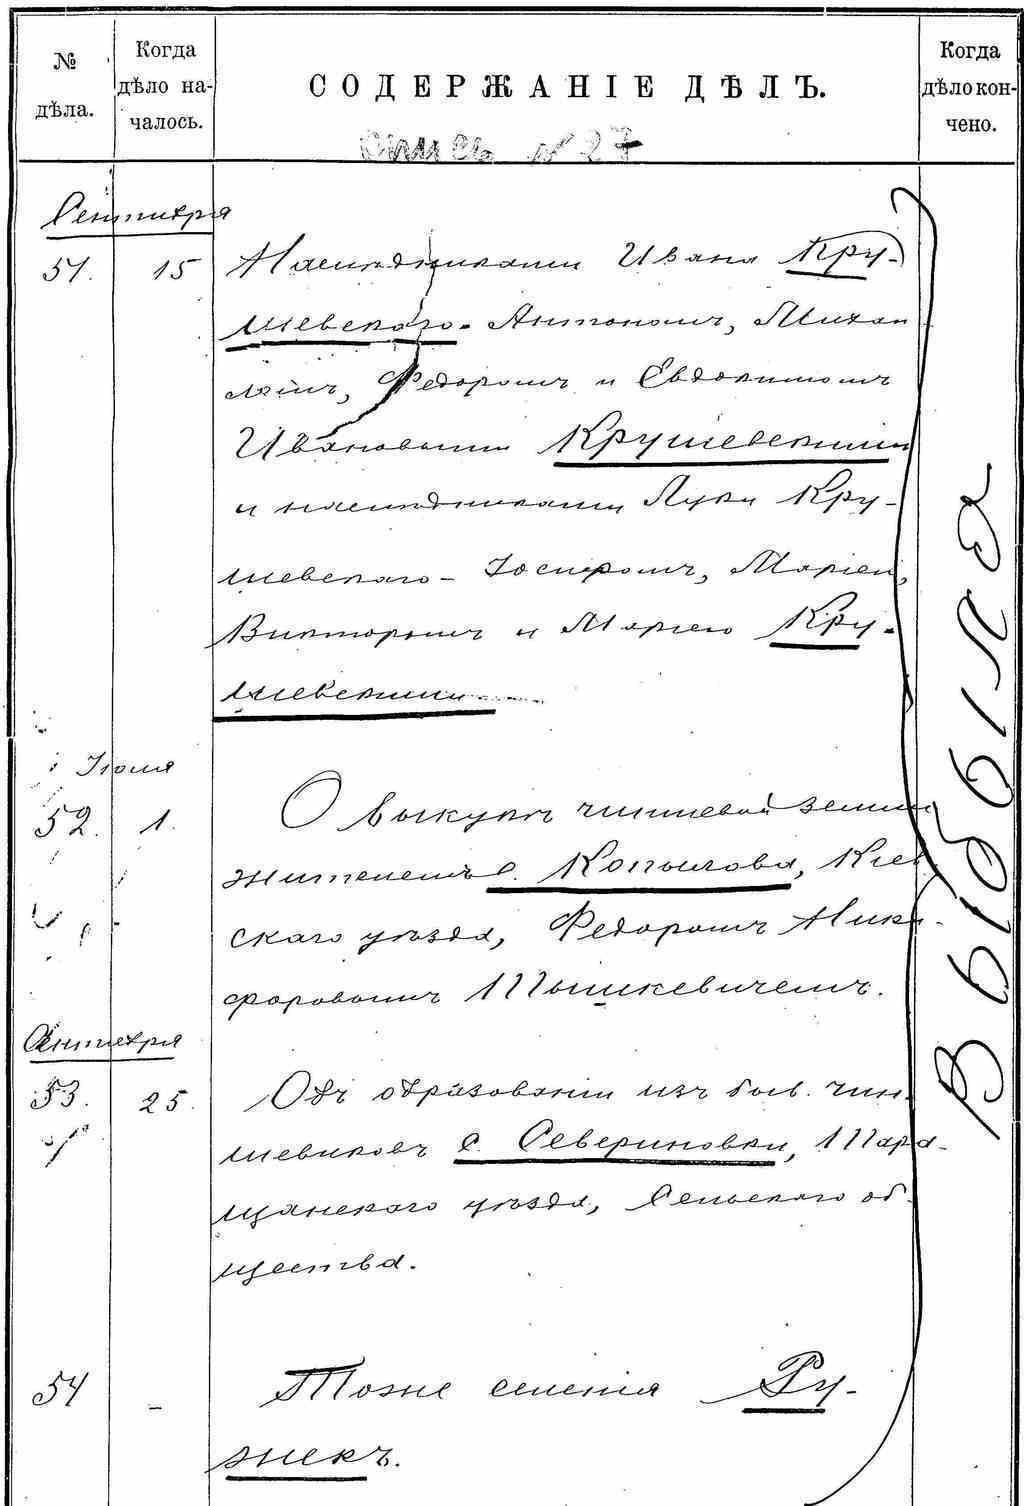 № дѣла.
Когда дѣло на-
чалось.
СОДЕРЖАНІЕ ДѢЛЪ.
Когда дѣло кон-
чено.
Опись № 27
Сентября
51. 15 Наслѣдниками Ивана Кру-
шевскаго - Антономъ, Михаи-
ломъ, Федоромъ и Евдокимомъ
Ивановыми Крушевскими
и наслѣдниками Луки Кру-
шевскаго - Іосифомъ, Маріей,
Викторомъ и Маріею Кру-
шевскими
Іюля
52. 1. О выкупѣ чиншевой земли
жителемъ с. Копылова, Кіев
скаго уѣзда, Федоромъ Ники-
форовымъ Тышкевичемъ.
Сентября
53. 25. Объ образованіи изъ быв. чин-
шевиковъ с. Севериновки, Тара-
щанскаго уѣзда, Сельскаго об-
щества.
54 - Тоже селенія Ру-
жекъ.